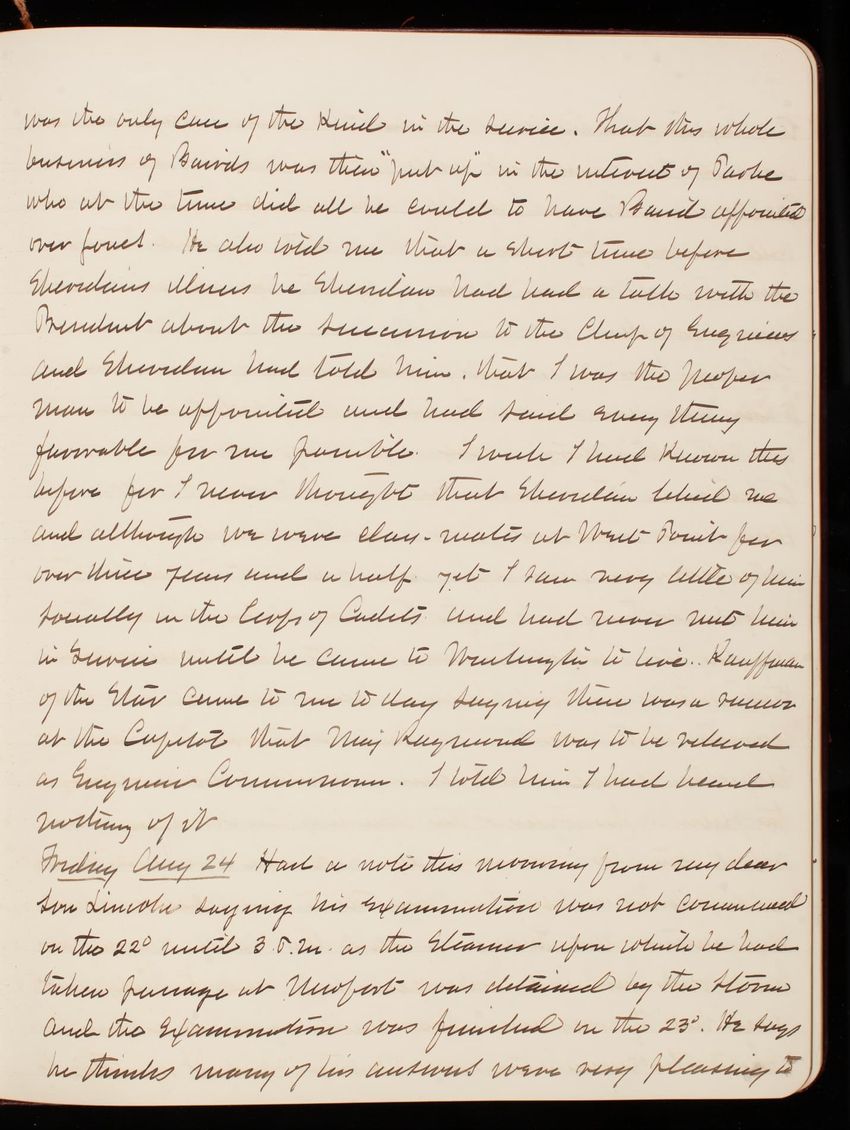 was the only case of the kind in the service. That this whole
business of Bairds was then "put up" in the interest of Parke
who at the time did all he could to have Baird appointed
over Grant. He also told me that a short time before
Sheridans illness he Sheridan had had a talk with the
President about the succession to the Chief of Engineers
and Sheridan had told him. that I was the proper
man to be appointed and had said every thing
favorable for me possible. I wish I had known this
before for I never thought that Sheridan liked me
and although we were class-mates at West Point for
over three years and a half yet I saw very little of him
socially in the Corps of Cadets and had never met him
in Service until he came to Washington to live. Kauffman
of the Star came to me to day saying there was a rumor
at the Capitol that Maj Raymond was to be relieved
as Engineer Commissioner. I told him I had heard
nothing of it
Friday Aug 24 Had a note this morning from my dear
Son Lincoln saying his examination was not commenced
on the 22d until 3 P.M. as the Steamer upon which he had
taken passage at Newport was detained by the storm
and the examination was finished on the 23d. He says
he thinks many of his answers were very pleasing to